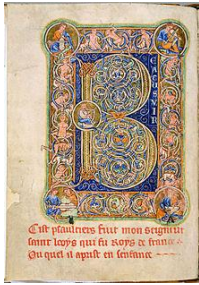 B
EATVS VIR
Cist psaultiers fuit mon seigneur
saint looys qui fu roys de france
Ou quel il aprist en senfance